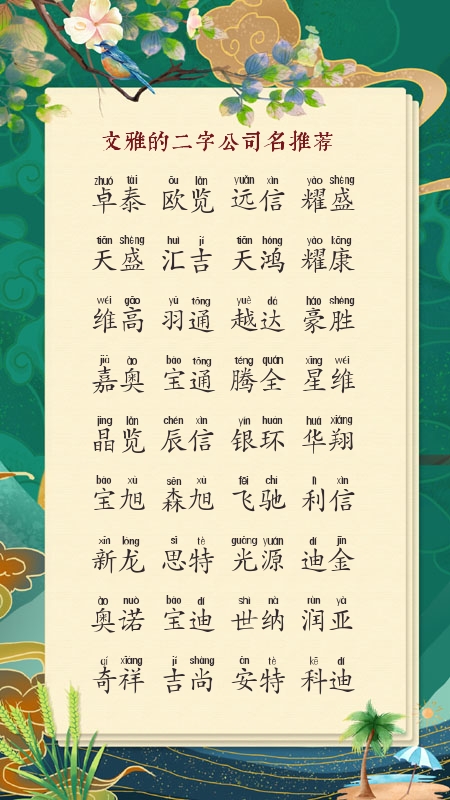 文雅的二字公司名推荐
zhuó tài ōu lǎn yuǎn xìn yào shèng
卓泰 欧览 远信 耀盛
tiān shèng huì jí tiān hóng yào kāng
天盛 汇吉 天鸿 耀康
wéi gāo yǔ tōng yuè dá háo shèng
维高 羽通 越达 豪胜
jiā ào bǎo tōng téng quán xīng wéi
嘉奥 宝通 腾全 星维
jīng lǎn chén xìn yín huán huá xiáng
晶览 辰信 银环 华翔
bǎo xù sēn xù fēi chí lì xìn
宝旭 森旭 飞驰 利信
xīn lóng sī tè guāng yuán dí jīn
新龙 思特 光源 迪金
ào nuò bǎo dí shì nà rùn yà
奥诺 宝迪 世纳 润亚
qí xiáng jí shàng ān tè kē dí
奇祥 吉尚 安特 科迪